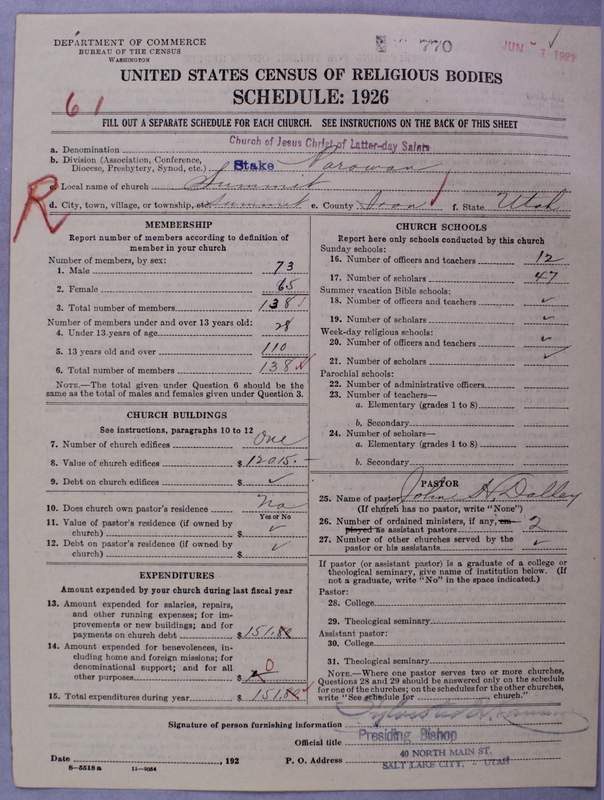 DEPARTMENT OF COMMERCE
BUREAU OF THE CENSUS
WASHINGTON
770
JUN
UNITED STATES CENSUS OF RELIGIOUS BODIES
SCHEDULE: 1926
61
FILL OUT A SEPARATE SCHEDULE FOR EACH CHURCH. SEE INSTRUCTIONS ON THE BACK OF THIS SHEET
a. Denomination Church of Jesus Christ of Latter-day Saints
b. Division (Association, Conference, Diocese, Presbytery, Synod, etc.) Stake Parowan
R
c. Local name of church Summit
d. City, town, village, or township, etc. Summit e. County Iron f. State Utah
MEMBERSHIP
Report number of members according to definition of
member in your church
Number of members, by sex:
1. Male 73
2. Female 65
3. Total number of members 138
Number of members under and over 13 years old:
4. Under 13 years of age 28
5. 13 years old and over 110
6. Total number of members 138
NOTE.—The total given under Question 6 should be
same as the total of males and females given under Question 3.
CHURCH BUILDINGS
See instructions, paragraphs 10 to 12
7. Number of church edifices One
8. Value of church edifices $ 12015.—
9. Debt on church edifices $ ✓
10. Does church own pastor's residence No
Yes or No
11. Value of pastor's residence (if owned by
church) $ ✓
12. Debt on pastor's residence (if owned by
church) $ ✓
EXPENDITURES
Amount expended by your church during last fiscal year
13. Amount expended for salaries, repairs,
and other running expenses; for im-
provements or new buildings; and for
payments on church debt $ 151.
14. Amount expended for benevolences, in-
cluding home and foreign missions; for
denominational support; and for all
other purposes $ 0
15. Total expenditures during year $ 151.
CHURCH SCHOOLS
Report here only schools conducted by this church
Sunday schools:
16. Number of officers and teachers 12
17. Number of scholars 47
Summer vacation Bible schools:
18. Number of officers and teachers ✓
19. Number of scholars ✓
Week-day religious schools:
20. Number of officers and teachers ✓
21. Number of scholars ✓
Parochial schools:
22. Number of administrative officers
23. Number of teachers—
a. Elementary (grades 1 to 8)
b. Secondary
24. Number of scholars—
a. Elementary (grades 1 to 8)
b. Secondary
PASTOR
25. Name of pastor John H. Dalley
(If church has no pastor, write "None")
26. Number of ordained ministers, if any, em-
ployed as assistant pastors 2
27. Number of other churches served by the
pastor or his assistants ✓
If pastor (or assistant pastor) is a graduate of a college or
theological seminary, give name of institution below. (If
not a graduate, write "No" in the space indicated.)
Pastor:
28. College
29. Theological seminary
Assistant pastor:
30. College
31. Theological seminary
NOTE.—Where one pastor serves two or more churches,
Questions 28 and 29 should be answered only on the schedule
for one of the churches; on the schedules for the other churches,
write "See schedule for church."
Signature of person furnishing information
Official title Presiding Bishop
Date , 192 P. O. Address 40 NORTH MAIN ST.
SALT LAKE CITY, - UTAH
8—5518 a 11—9054